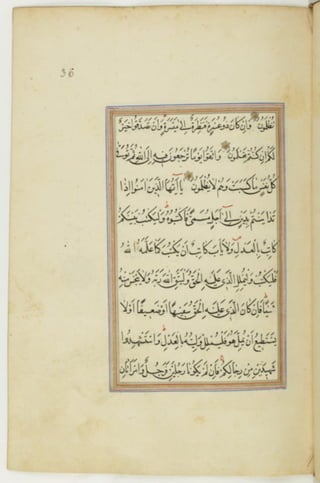 36
تُظْلَمُونَ وَإِنْ كَانَ ذُو عُسْرَةٍ فَنَظِرَةٌ إِلَى مَيْسَرَةٍ وَأَنْ تَصَدَّقُوا خَيْرٌ
لَكُمْ إِنْ كُنْتُمْ تَعْلَمُونَ وَاتَّقُوا يَوْمًا تُرْجَعُونَ فِيهِ إِلَى اللَّهِ ثُمَّ تُوَفَّى
كُلُّ نَفْسٍ مَا كَسَبَتْ وَهُمْ لَا يُظْلَمُونَ يَا أَيُّهَا الَّذِينَ آمَنُوا إِذَا
تَدَايَنْتُمْ بِدَيْنٍ إِلَى أَجَلٍ مُسَمًّى فَاكْتُبُوهُ وَلْيَكْتُبْ بَيْنَكُمْ
كَاتِبٌ بِالْعَدْلِ وَلَا يَأْبَ كَاتِبٌ أَنْ يَكْتُبَ كَمَا عَلَّمَهُ اللَّهُ
فَلْيَكْتُبْ وَلْيُمْلِلِ الَّذِي عَلَيْهِ الْحَقُّ وَلْيَتَّقِ اللَّهَ رَبَّهُ وَلَا يَبْخَسْ مِنْهُ
شَيْئًا فَإِنْ كَانَ الَّذِي عَلَيْهِ الْحَقُّ سَفِيهًا أَوْ ضَعِيفًا أَوْ لَا
يَسْتَطِيعُ أَنْ يُمِلَّ هُوَ فَلْيُمْلِلْ وَلِيُّهُ بِالْعَدْلِ وَاسْتَشْهِدُوا
شَهِيدَيْنِ مِنْ رِجَالِكُمْ فَإِنْ لَمْ يَكُونَا رَجُلَيْنِ فَرَجُلٌ وَامْرَأَتَانِ